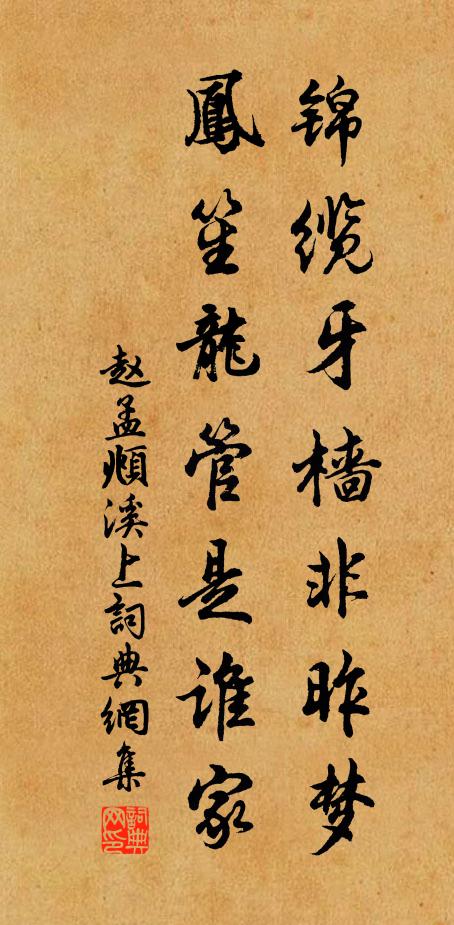 锦缆牙樯非昨梦
鳳笙龍管是谁家
赵孟頫溪上詞典網集
詞典网印